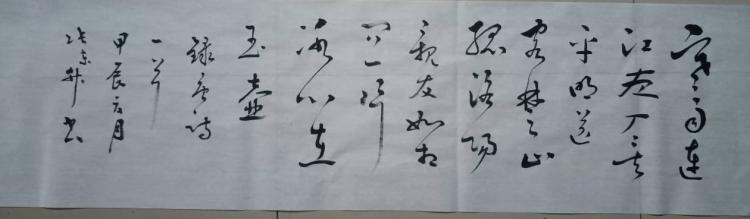 寒雨連
江夜入吴
平明送
客楚山
孤洛陽
親友如相
问一片
冰心在
玉壶
録唐詩
一首
甲辰月
东升书